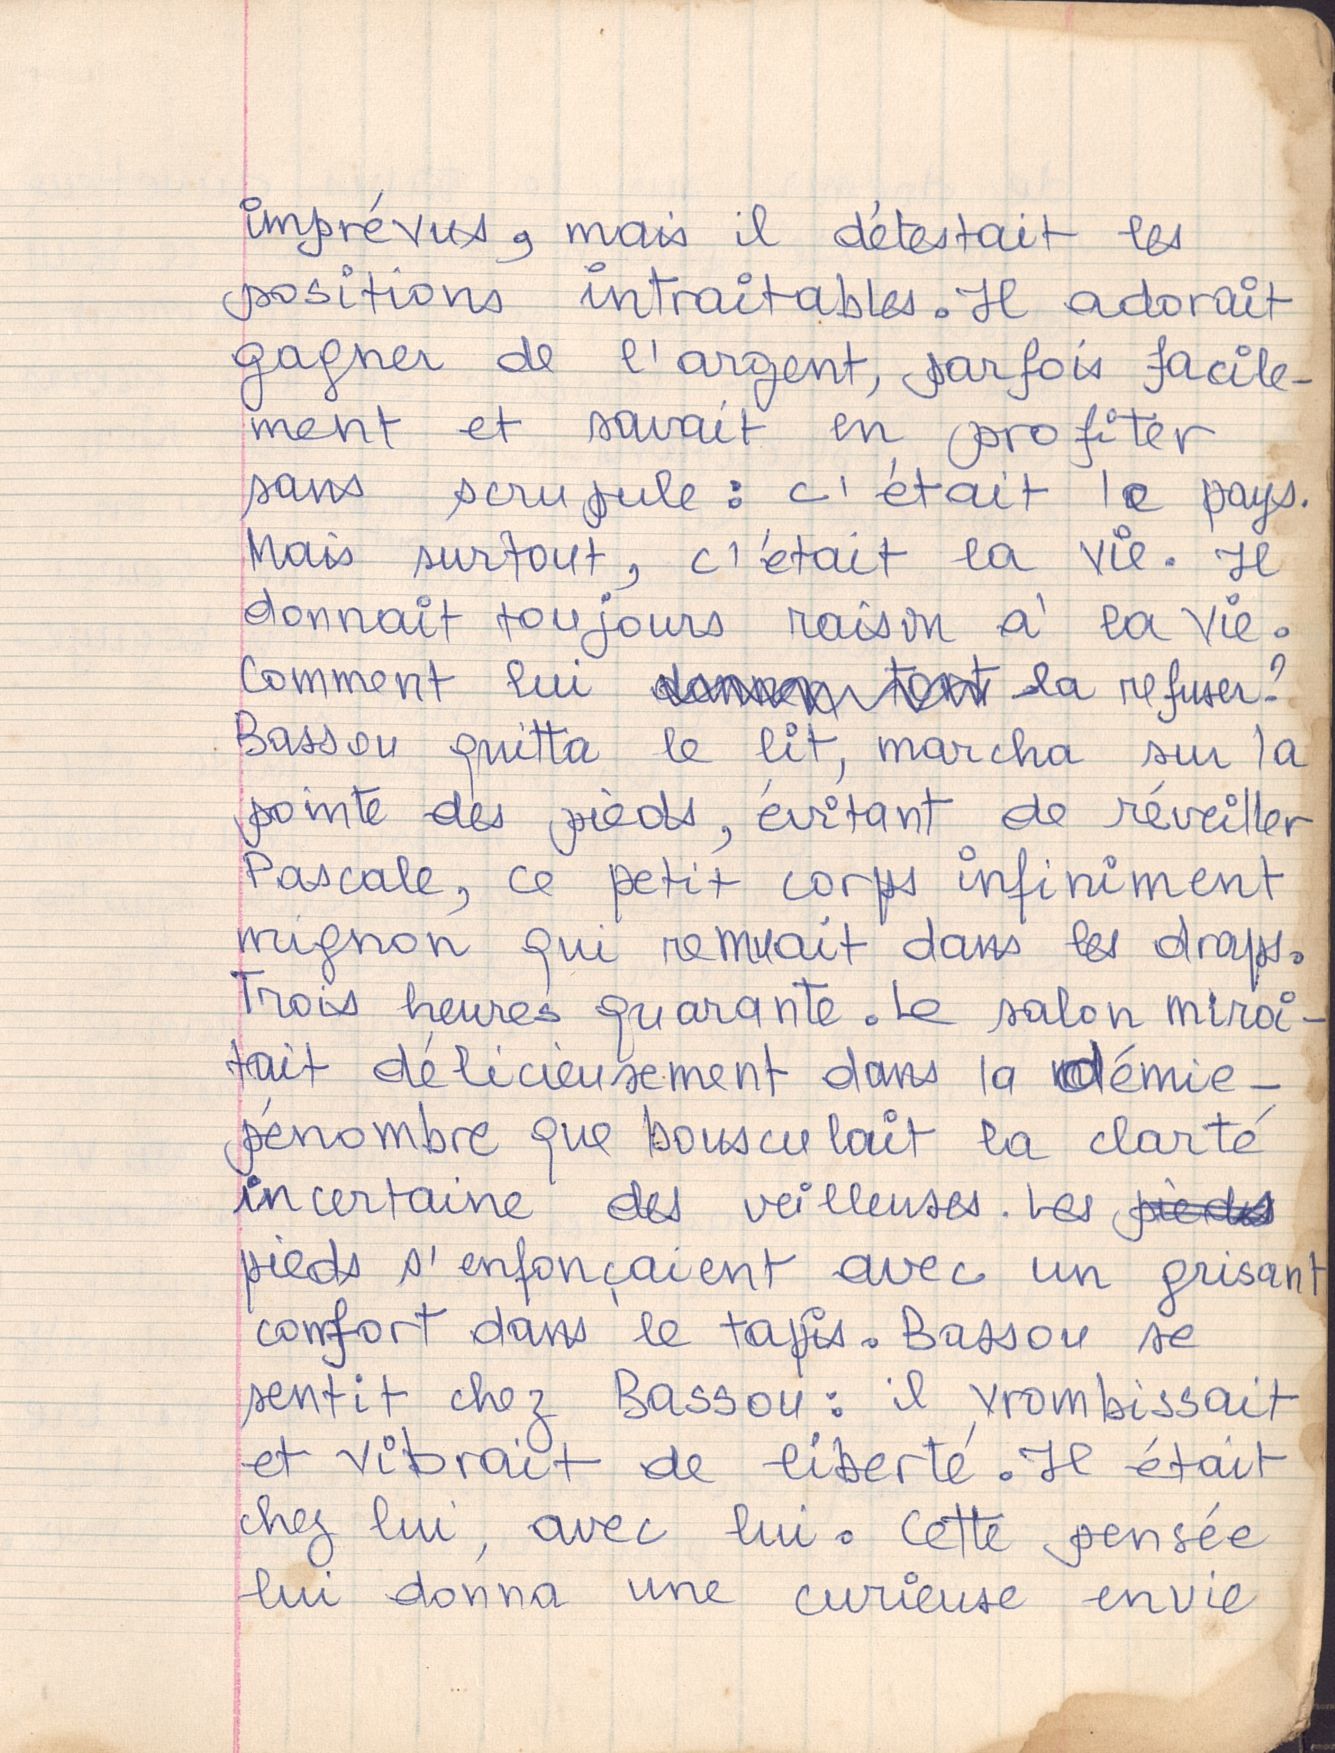 imprévus, mais il détestait les
positions intraitables. Il adorait
gagner de l'argent, parfois facile-
ment et savait en profiter
sans scrupule : c'était le pays.
Mais surtout, c'était la vie. Il
donnait toujours raison à la vie.
Comment lui la refuser ?
Bassou quitta le lit, marcha sur la
pointe des pieds, évitant de réveiller
Pascale, ce petit corps infiniment
mignon qui remuait dans les draps.
Trois heures quarante. Le salon miroi-
tait délicieusement dans la démie-
pénombre que bousculait la clarté
incertaine des veilleuses. Les pieds
pieds s'enfonçaient avec un grisant
comfort dans le tapis. Bassou se
sentit chez Bassou : il vrombissait
et vibrait de liberté. Il était
chez lui, avec lui. Cette pensée
lui donna une curieuse envie